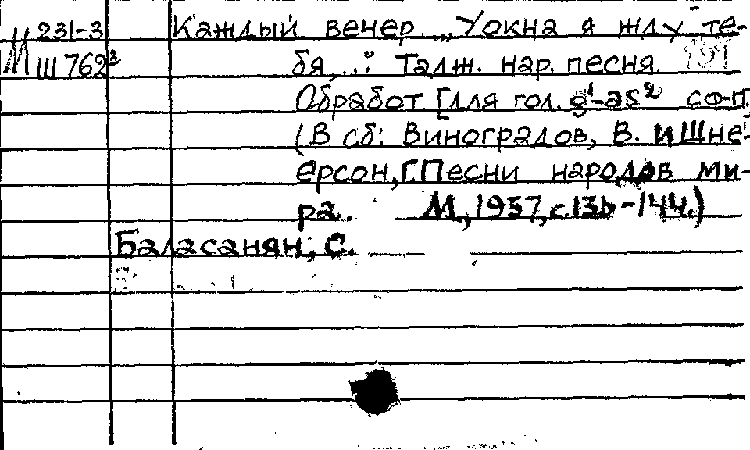 М 231-3 Каждый вечер „У окна я жду те-
Ш 762² бя,..." Тадж. нар. песня
Обработ [для гол. g¹-as² с ф-п]
(В сб: Виноградов, В. и Шне-
ерсон, Г. Песни народов ми-
ра. М., 1957, с. 136-144.)
Баласанян, С.